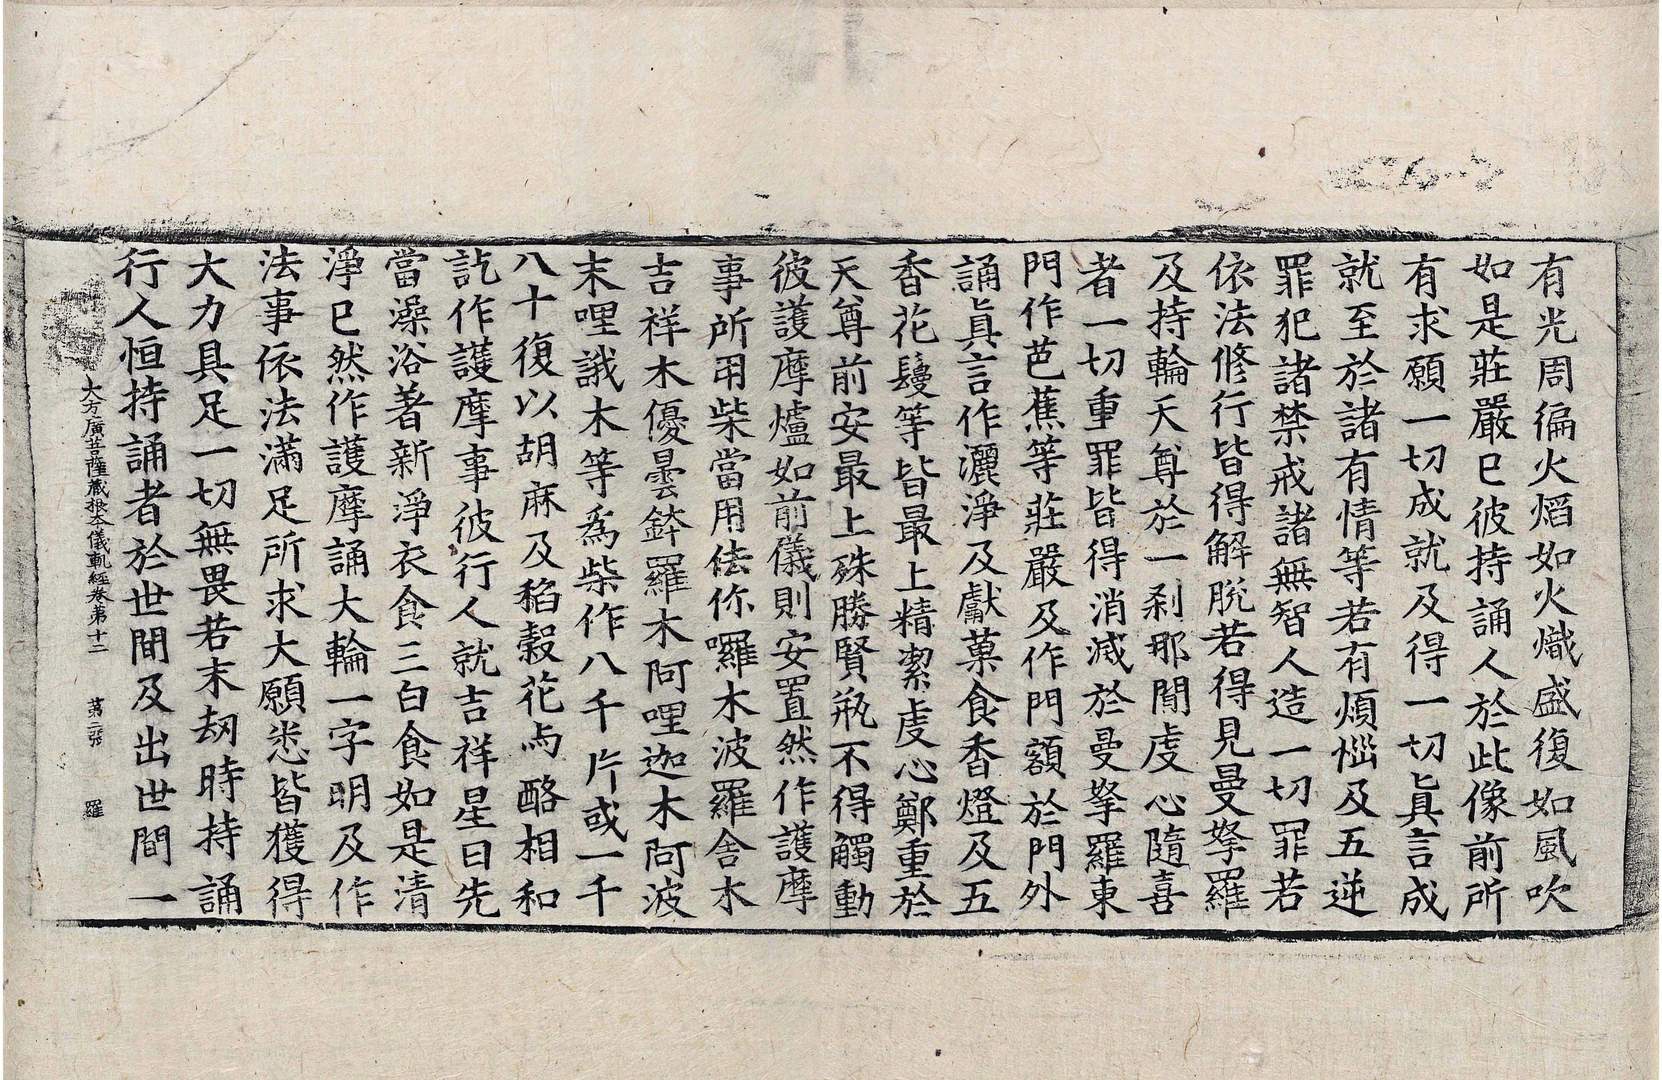 有光周徧火熖如火熾盛復如風吹
如是莊嚴已彼持誦人於此像前所
有求願一切成就及得一切眞言成
就至於諸有情等若有煩惱及五逆
罪犯諸禁戒諸無智人造一切罪若
依法修行皆得解脫若得見曼拏羅
及持輪天尊於一刹那閒虔心隨喜
者一切重罪皆得消滅於曼拏羅東
門作芭蕉等莊嚴及作門額於門外
誦眞言作灑淨及獻菓食香燈及五
香花鬘等皆最上精潔虔心鄭重於
天尊前安最上殊勝賢瓶不得觸動
彼護摩爐如前儀則安置然作護摩
事所用柴當用佉你囉木波羅舍木
吉祥木優曇鉢羅木阿哩迦木阿波
末哩誐木等爲柴作八千片或一千
八十復以胡麻及稻穀花与酪相和
訖作護摩事彼行人就吉祥星日先
當澡浴著新淨衣食三白食如是清
淨已然作護摩誦大輪一字明及作
法事依法滿足所求大願悉皆獲得
大力具足一切無畏若末劫時持誦
行人恒持誦者於世間及出世間一
大方廣菩薩藏根夲儀軌經卷第十二 第二張 羅